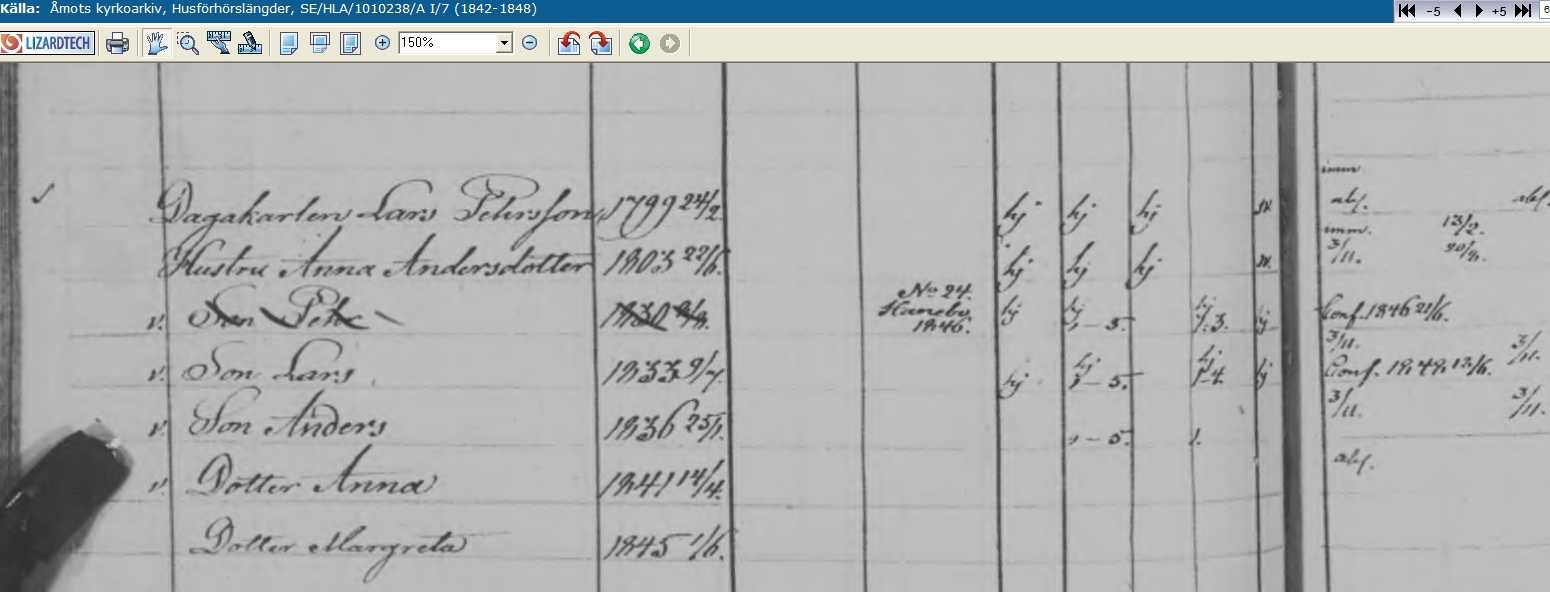 Källa: Åmots kyrkoarkiv, Husförhörslängder, SE/HLA/1010238/A I/7 (1842-1848)
-5 +5 6
LIZARDTECH 150%
imm
Dagakarlen Lars Pehrsson 1799 24/2. hj hj hj abs. abs.
imm. 13/2.
Hustru Anna Andersdotter 1803 22/6. hj hj hj 3/11. 20/11.
v. Son Pehr 1830 No 24. Hanebo 1846. hj hj 1-5. hj 1.3. hj Conf. 1846 21/6.
3/11. 3/11.
v. Son Lars 1833 9/7 hj hj 1-5. hj 1-4. hj Conf. 1848 13/6.
3/11. 3/11.
v. Son Anders 1836 25/1. 1-5. 1.
v. Dotter Anna 1841 14/4. abs.
Dotter Margreta 1845 1/6.